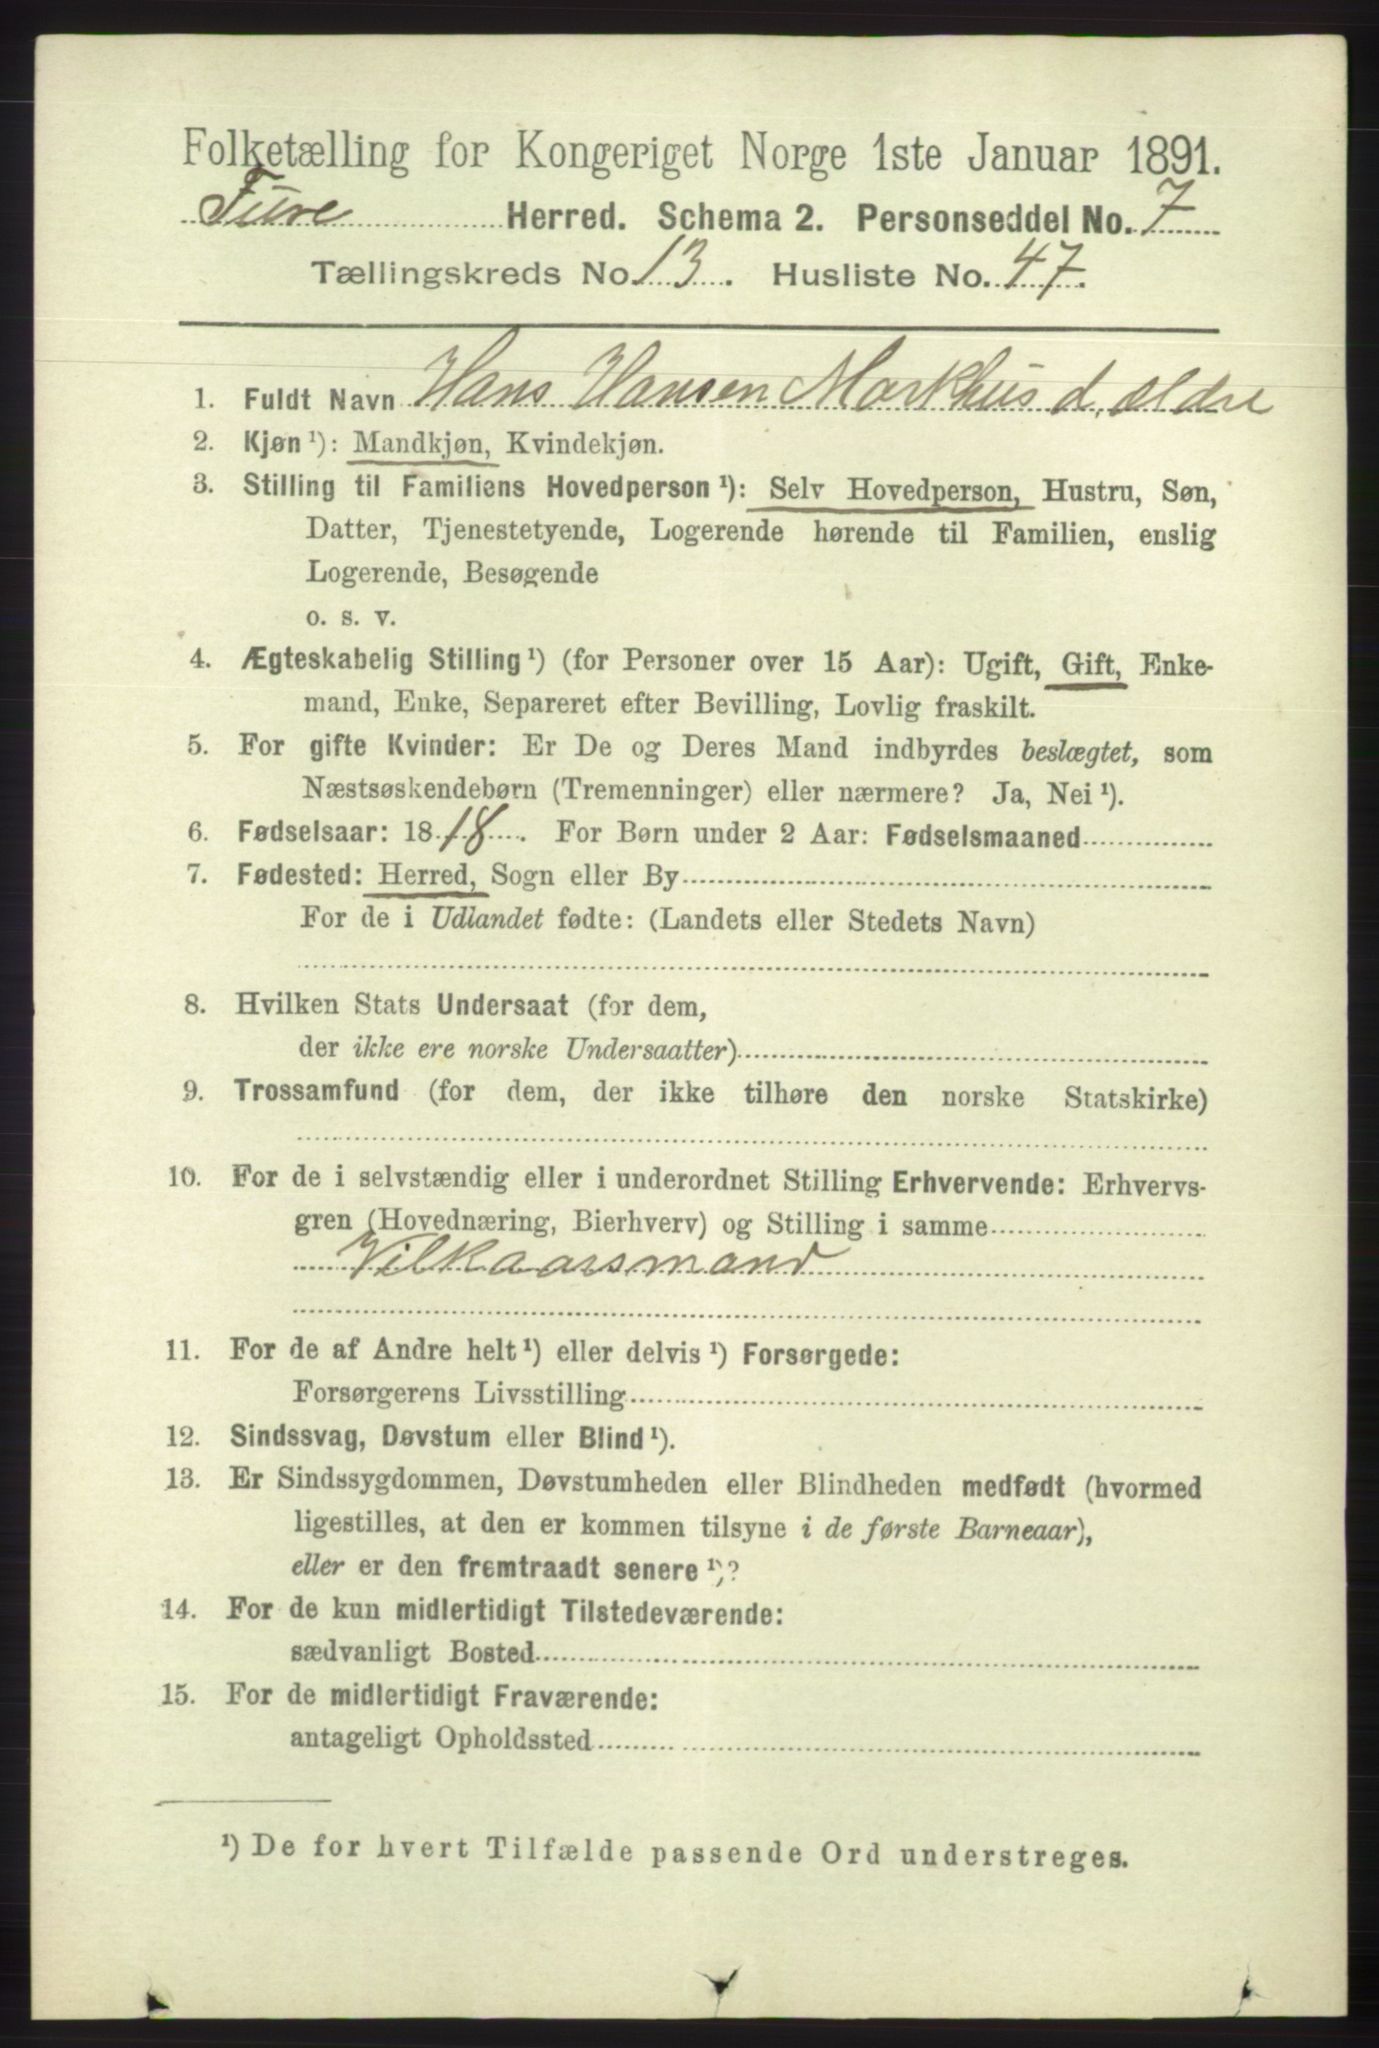 Folketælling for Kongeriget Norge 1ste Januar 1891.
Herred. Schema 2. Personseddel No. 7
Tællingskreds No 13. Husliste No. 47.
1. Fuldt Navn Hans Hansen Markhus d. ældre
2. Kjøn¹): Mandkjøn, Kvindekjøn.
3. Stilling til Familiens Hovedperson¹): Selv Hovedperson, Hustru, Søn,
Datter, Tjenestetyende, Logerende hørende til Familien, enslig
Logerende, Besøgende
o. s. v.
4. Ægteskabelig Stilling¹) (for Personer over 15 Aar): Ugift, Gift, Enke-
mand, Enke, Separeret efter Bevilling, Lovlig fraskilt.
5. For gifte Kvinder: Er De og Deres Mand indbyrdes beslægtet, som
Næstsøskendebørn (Tremenninger) eller nærmere? Ja, Nei¹).
6. Fødselsaar: 1818. For Børn under 2 Aar: Fødselsmaaned
7. Fødested: Herred, Sogn eller By
For de i Udlandet fødte: (Landets eller Stedets Navn)
8. Hvilken Stats Undersaat (for dem,
der ikke ere norske Undersaatter)
9. Trossamfund (for dem, der ikke tilhøre den norske Statskirke)
10. For de i selvstændig eller i underordnet Stilling Erhvervende: Erhvervs-
gren (Hovednæring, Bierhverv) og Stilling i samme
Vilkaarsmand
11. For de af Andre helt¹) eller delvis¹) Forsørgede:
Forsørgerens Livsstilling
12. Sindssvag, Døvstum eller Blind¹).
13. Er Sindssygdommen, Døvstumheden eller Blindheden medfødt (hvormed
ligestilles, at den er kommen tilsyne i de første Barneaar),
eller er den fremtraadt senere¹)?
14. For de kun midlertidigt Tilstedeværende:
sædvanligt Bosted
15. For de midlertidigt Fraværende:
antageligt Opholdssted
¹) De for hvert Tilfælde passende Ord understreges.